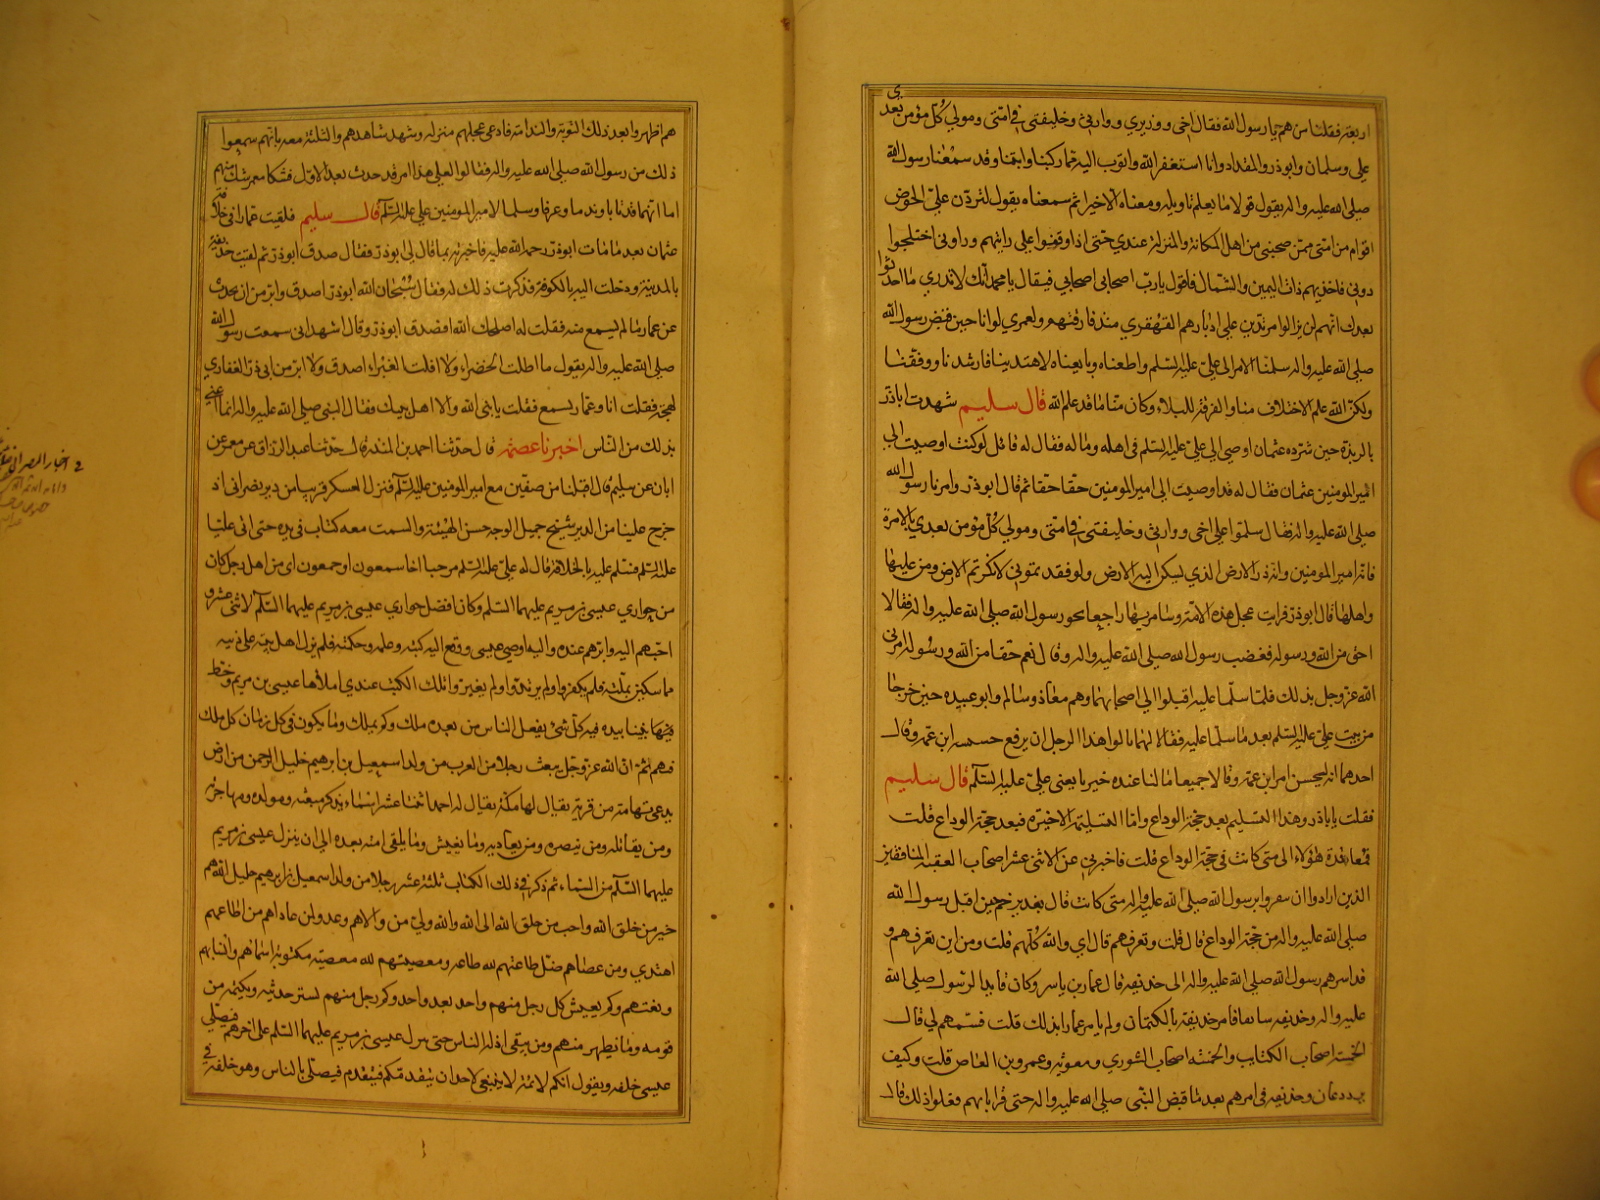 اربعة فقلنا من هم يا رسول الله فقال اخي ووزيري ووارثي وخليفتي في امتي ومولي كل مؤمن بعدي
علي وسلمان وابوذر والمقداد وانا استغفر الله واتوب اليه مما ركبنا واتينا وقد سمعنا رسول الله
صلي الله عليه واله يقول قولا ما يعلم تاويله ومعناه الا خيرا ثم سمعناه يقول لتردن علي الحوض
اقوام من امتي ممن صحبني من اهل المكانة والمنزلة عندي حتي اذا وقفوا علي راتبهم وراوني اختلجوا
دوني فاخذ بهم ذات اليمين والشمال فاقول يارب اصحابي اصحابي فيقال يا محمد انك لا تدري ما احدثوا
بعدك انهم لن يزالوا مرتدين علي ادبارهم القهقري منذ فارقتهم ولعمري لو انا حين قبض رسول الله
صلي الله عليه واله سلمنا الامر الي علي عليه السلم واطعناه وبايعناه لاهتدينا فارشدنا ووفقنا
ولكن الله علم الاختلاف منا والفرقة للبلاء وكان منا ما قد علم الله قال سليم شهدت اباذر
بالربذة حين شرده عثمان اوصي الي علي عليه السلم في اهله وماله فقال له قائل لو كنت اوصيت الي
امير المومنين عثمان فقال له قد اوصيت الي امير المومنين حقا حقا ثم قال ابوذر وامرنا رسول الله
صلي الله عليه واله فقال سلموا علي اخي ووارثي وخليفتي في امتي ومولي كل مؤمن بعدي بالامرة
فانه امير المومنين وانه زر الارض الذي يسكن اليه الارض ولو فقدتموني لانكرتم الارض ومن عليها
واهلها قال ابوذر فرايت عجل هذه الامة وسامريها راجعا نحو رسول الله صلي الله عليه واله فقالا
احق من الله ورسوله فغضب رسول الله صلي الله عليه واله وقال نعم حقا من الله ورسوله امرني
الله عز وجل بذلك فلما سلما عليه اقبلوا الي اصحابهما وهم معاذ وسالم وابو عبيده حين خرجا
من بيت علي عليه السلم بعد ما سلما عليه فقالا لهما ما لوا هذا الرجل ان يرفع ابن عمه وقال
احدهما انه ليحسن امر ابن عمه وقالا جميعا ما لنا عنده خير ما بقي علي عليه السلم قال سليم
فقلت يا باذر وهذا التسليم بعد حجة الوداع واما التسليمة الاخيرة فبعد حجة الوداع قلت
هؤلاء الي متي كانت في حجة الوداع قلت فاخبرني عن الاثني عشر اصحاب العقبة المنافقين
الذين ارادوا ان برسول الله صلي الله عليه واله متي كانت قال بغدير خم حين اقبل رسول الله
صلي الله عليه واله من حجة الوداع قال قلت وتعرفهم قال اي والله كلهم قلت ومن اين تعرفهم و
قد اسرهم رسول الله صلي الله عليه واله الي حذيفه قال عمار بن ياسر وكان قايدا لرسول صلي الله
عليه واله وحذيفه سايقا فامر حذيفة بالكتمان ولم يامر عمارا بذلك قلت فسمهم لي قال
الخمسة اصحاب الكتاب والخمسة اصحاب الشوري ومعويه وعمرو بن العاص قلت وكيف
عمار وحذيفه في امرهم بعد ما قبض النبي صلي الله عليه واله حتي قال
هم اظهروا بعد ذلك التوبة والندامة فادعي عجلهم منزلة وشهد شاهدهم والثلثة معه بانهم سمعوا
ذلك من رسول الله صلي الله عليه واله فقالوا لعلي هذا امر قد حدث بعد الاول فشكا من شك منهم
اما انهما قد تابا وندما وعرفا وسلما لامير المومنين علي عليه السلم قال سليم فلقيت عمارا في خلافة
عثمان بعد ما مات ابوذر رحمه الله عليه فاخبرته بما قال لي ابوذر فقال صدق ابوذر ثم لقيت حذيفة
بالمدينة ودخلت اليه بالكوفة فذكرت ذلك له فقال سبحان الله ابوذر اصدق وابر من ان يحدث
عن عمار ما لم يسمع منه فقلت له اصلحك الله افصدق ابوذر وقال اشهد اني سمعت رسول الله
صلي الله عليه واله يقول ما اظلت الخضراء ولا اقلت الغبراء اصدق ولا ابر من ابي ذر الغفاري
لهجة فقلت انا وعمار يسمع فقلت يا نبي الله ولا اهل بيتك فقال النبي صلي الله عليه واله انما اعني
بذلك من الناس اخبرنا عصمة قال حدثنا احمد بن المنذر قال حدثنا عبد الرزاق عن معمر عن
ابان عن سليم قال اقبلنا من صفين مع امير المومنين عليه السلم فنزل العسكر قريبا من دير نصراني اذ
خرج علينا من الدير شيخ جميل الوجه حسن الهيئة والسمت معه كتاب في يده حتي اتي عليا
عليه السلم فسلم عليه بالخلافة قال له علي عليه السلم مرحبا اخا سمعون او جمعون اي من اهل رجل كان
من حواري عيسي بن مريم عليهما السلم وكان افضل حواري عيسي بن مريم عليهما السلم الاثني عشر و
احبهم اليه وابرهم عنده واليه اوصي عيسي ودفع اليه كتبه وعلمه وحكمته فلم يزل اهل بيته علي دينه
متمسكين بملته فلم يكفروا ولم يرتدوا ولم يغيروا وتلك الكتب عندي املاها عيسي بن مريم وخط
فيها نبينا بيده فيه كل شي يفعل الناس من بعده ملك وكم يملك وما يكون في كل زمان كل ملك
منهم ثم ان الله عز وجل يبعث رجلا من العرب من ولد اسمعيل بن ابرهيم خليل الرحمن من ارض
يدعي تهامة من قرية يقال لها مكة يقال له احمد اثنا عشر اسماء يذكر مبعثه ومولده ومهاجره
ومن يقاتله ومن ينصره ومن يعاديه وما يعيش وما يلقي امته بعده الي ان ينزل عيسي بن مريم
عليهما السلم من السماء ثم ذكر في ذلك الكتاب ثلثة عشر رجلا من ولد اسمعيل بن ابرهيم خليل الله هم
خير من خلق الله واحب من خلق الله الي الله والله ولي من والاهم وعدو لمن عاداهم من اطاعهم
اهتدي ومن عصاهم ضل طاعتهم لله طاعه ومعصيتهم لله معصيه مكتوبة اسماهم وانسابهم
ونعتهم وكم يعيش كل رجل منهم واحد بعد واحد وكم رجل منهم يستر حديثه ويكتمه من
قومه وما يظهر منهم ومن يبقي الناس حتي ينزل عيسي بن مريم عليهما السلم علي اخرهم فيصلي
عيسي خلفه ويقول انكم لائمة لا ينبغي لاحد ان يتقدمكم فيتقدم فيصلي بالناس وهو خلفه في